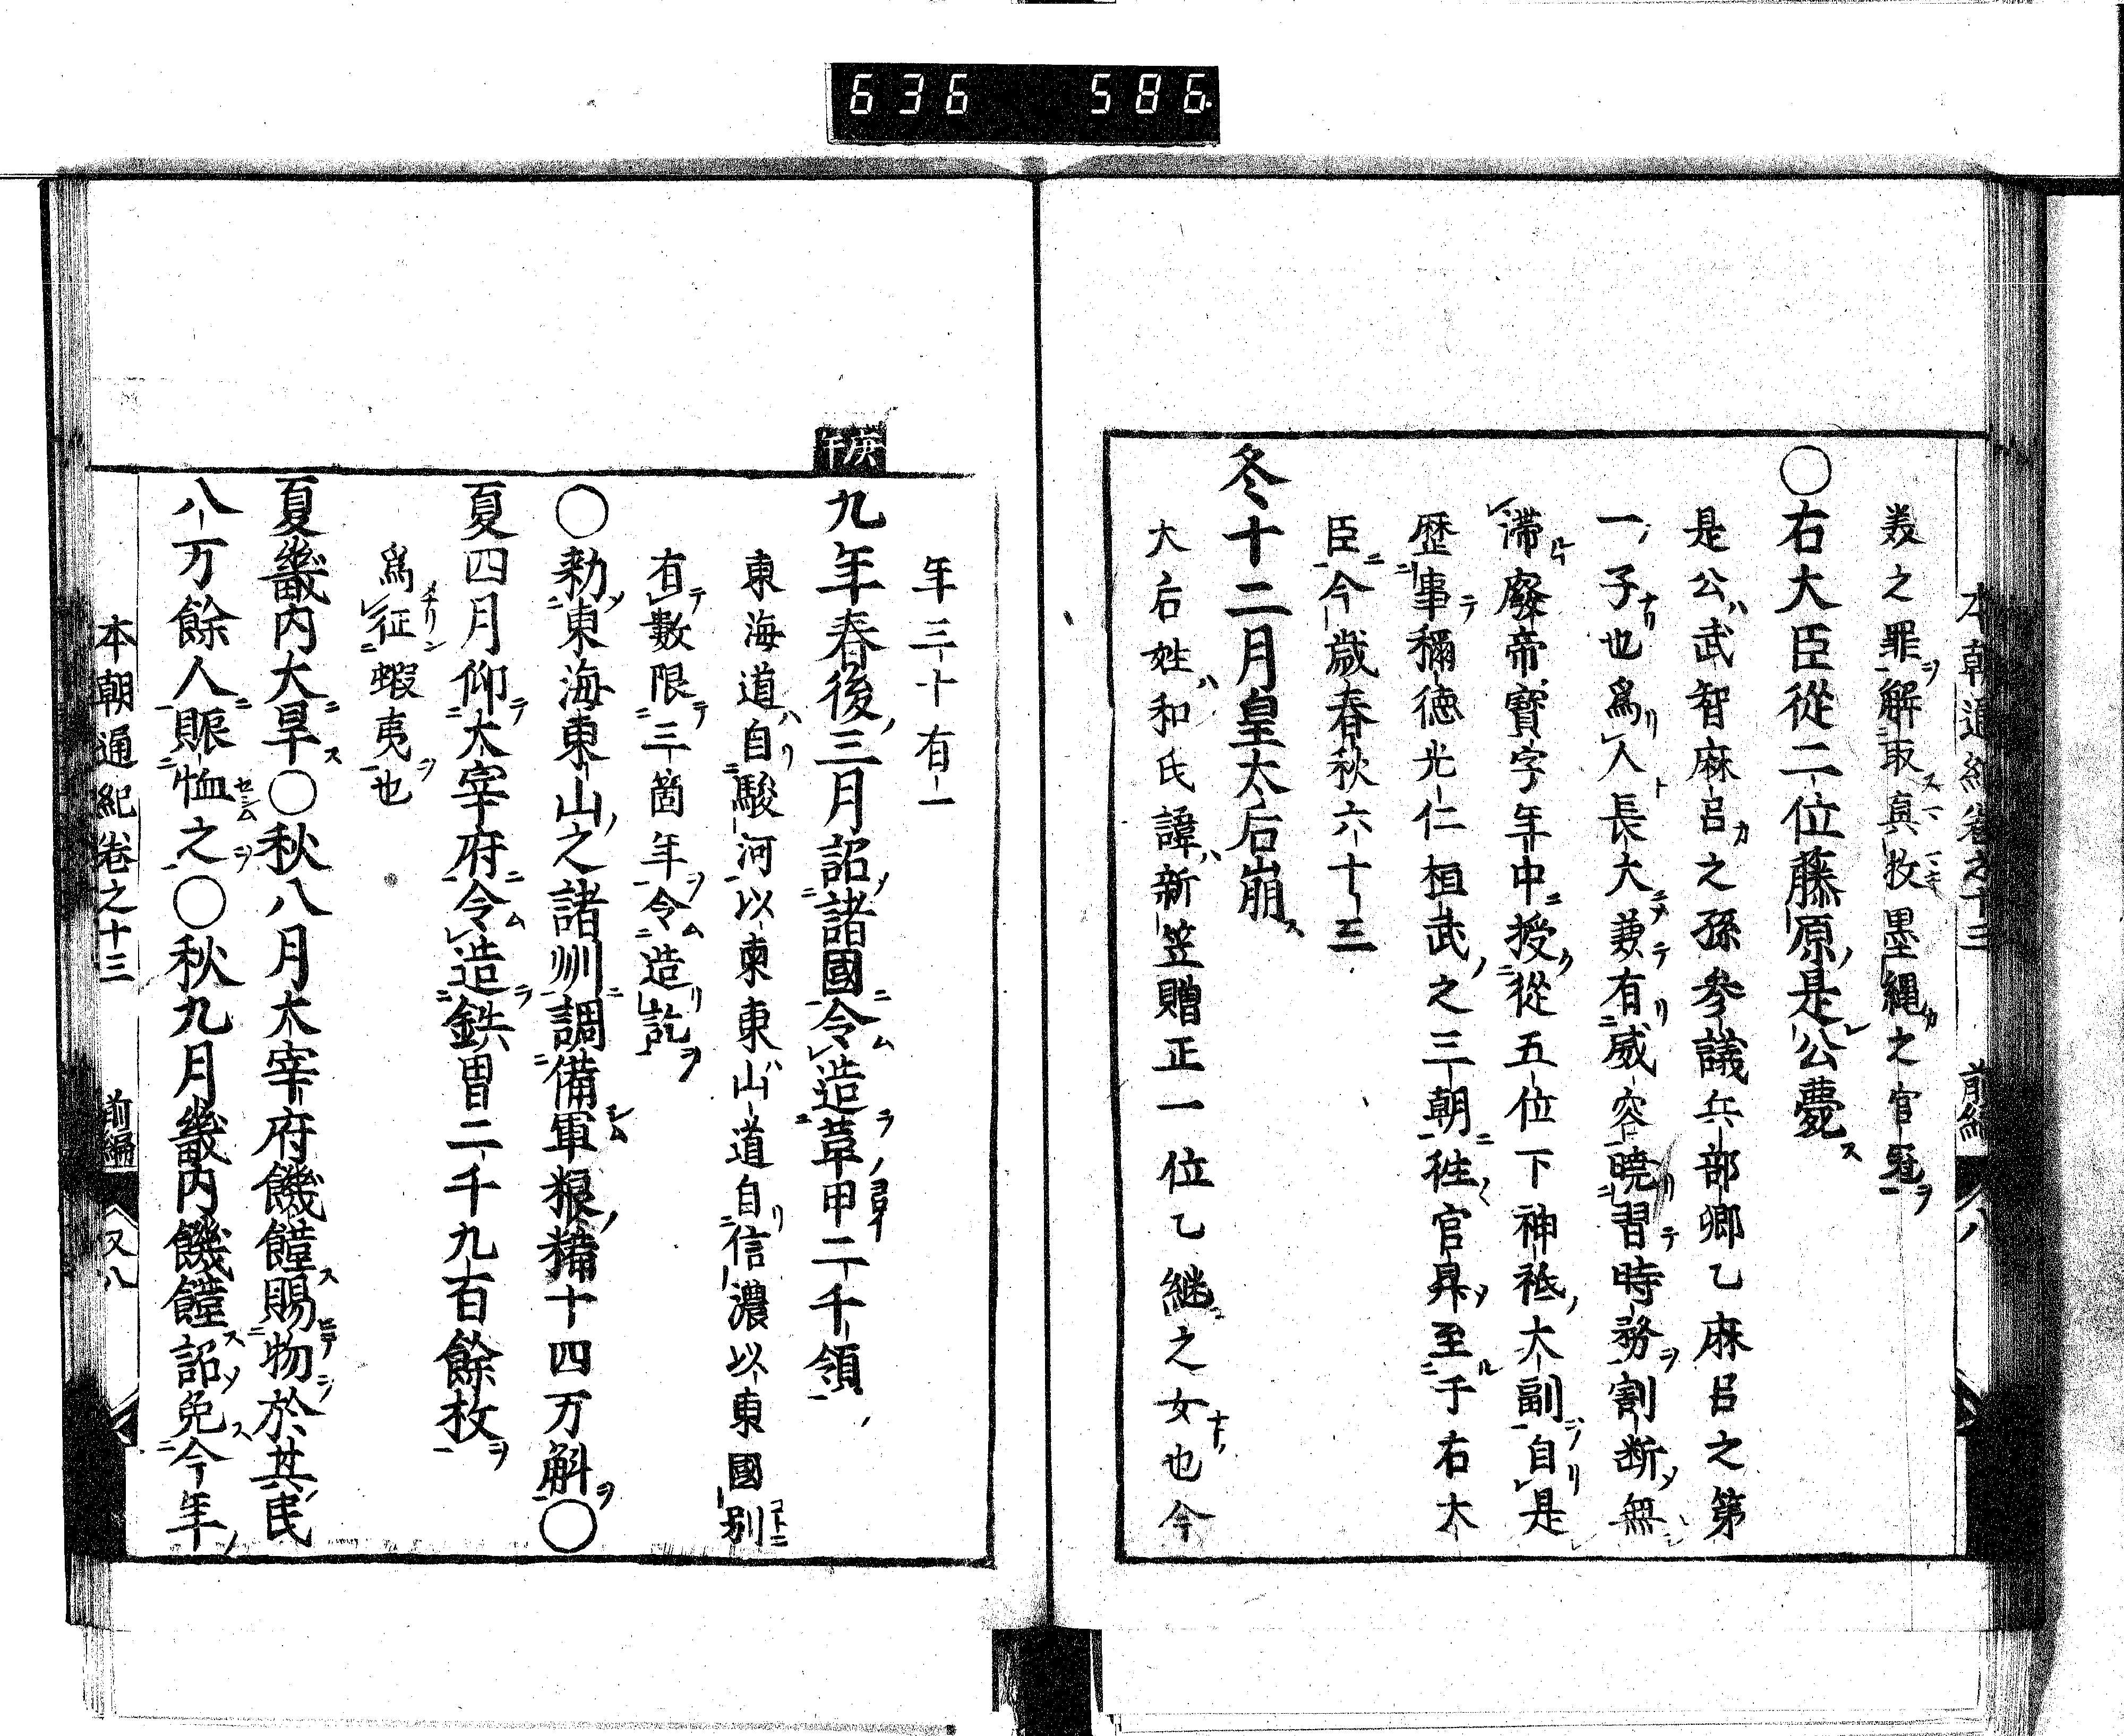 636 586
本朝通紀巻之十三 前編 八
美之罪解取真牧墨縄之官冠
〇右大臣從二位藤原是公薨
是公武智麻呂之孫參議兵部卿乙麻呂之第
一子也爲人長大兼有威容曉習時務割断無
滞廢帝寳字年中授從五位下神祇大副自是
歴事稱徳光仁桓武之三朝徃官昇至于右大
臣今歳春秋六十三
冬十二月皇太后崩
大后姓和氏諱新笠贈正一位乙継之女也今
年三十有一
庚午
九年春後三月詔諸國令造革甲二千領
東海道自駿河以東東山道自信濃以東國別
有數限三箇年令造訖
〇勅東海東山之諸州調備軍粮糒十四万斛〇
夏四月仰太宰府令造鉄冑二千九百餘枚
爲征蝦夷也
夏畿内大旱〇秋八月太宰府饑饉賜物於其民
八万餘人賑恤之〇秋九月畿内饑饉詔免今年
本朝通紀巻之十三 前編 又八